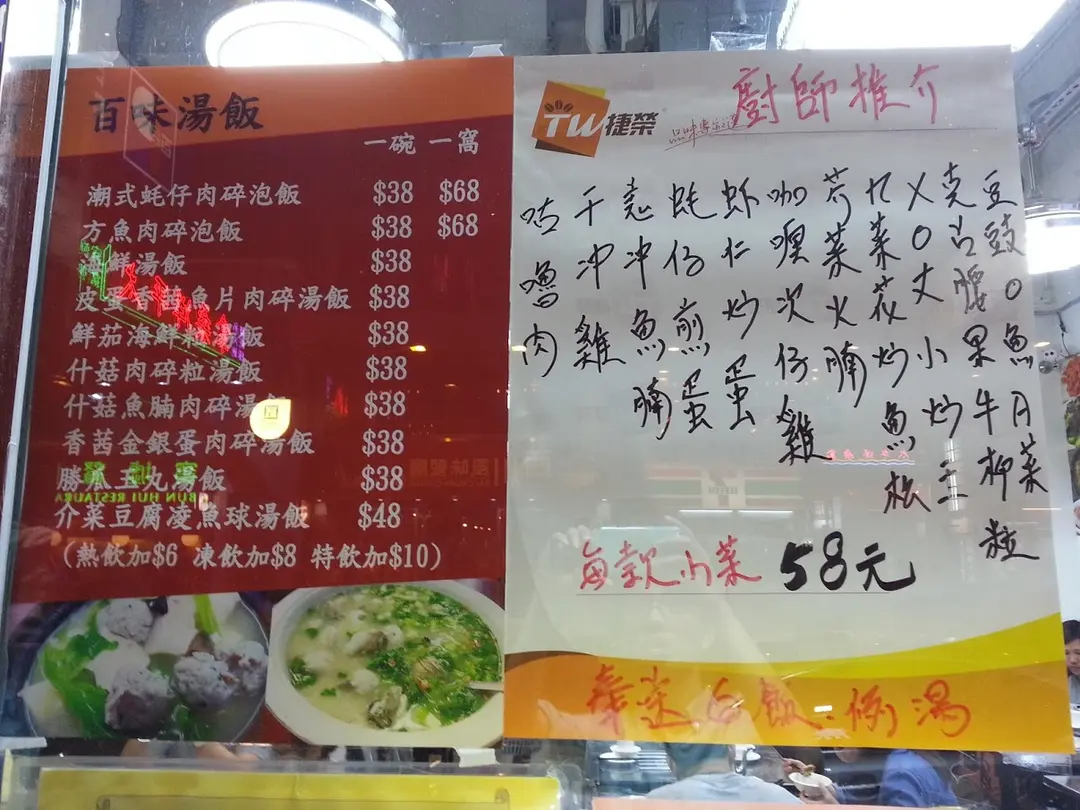 百味湯飯
一碗 一窩
潮式蚝仔肉碎泡飯 $38 $68
方魚肉碎泡飯 $38 $68
海鮮湯飯 $38
皮蛋香茜魚片肉碎湯飯 $38
鮮茄海鮮粒湯飯 $38
什菇肉碎粒湯飯 $38
什菇魚腩肉碎湯飯 $38
香茜金銀蛋肉碎湯飯 $38
勝瓜玉丸湯飯 $38
介菜豆腐凌魚球湯飯 $48
(熱飲加$6 凍飲加$8 特飲加$10)
TW 捷榮
廚師推介
豆豉O魚月菜
克古腰果牛柳粒
XO丈小炒王
九菜花炒魚松
芥菜火腩
咖喱次仔雞
虾仁炒蛋
蚝仔煎蛋
冲魚腩
干冲雞
咕嚕肉
每款小菜 58元
奉送白飯.例湯
BUN HUI RESTAURA